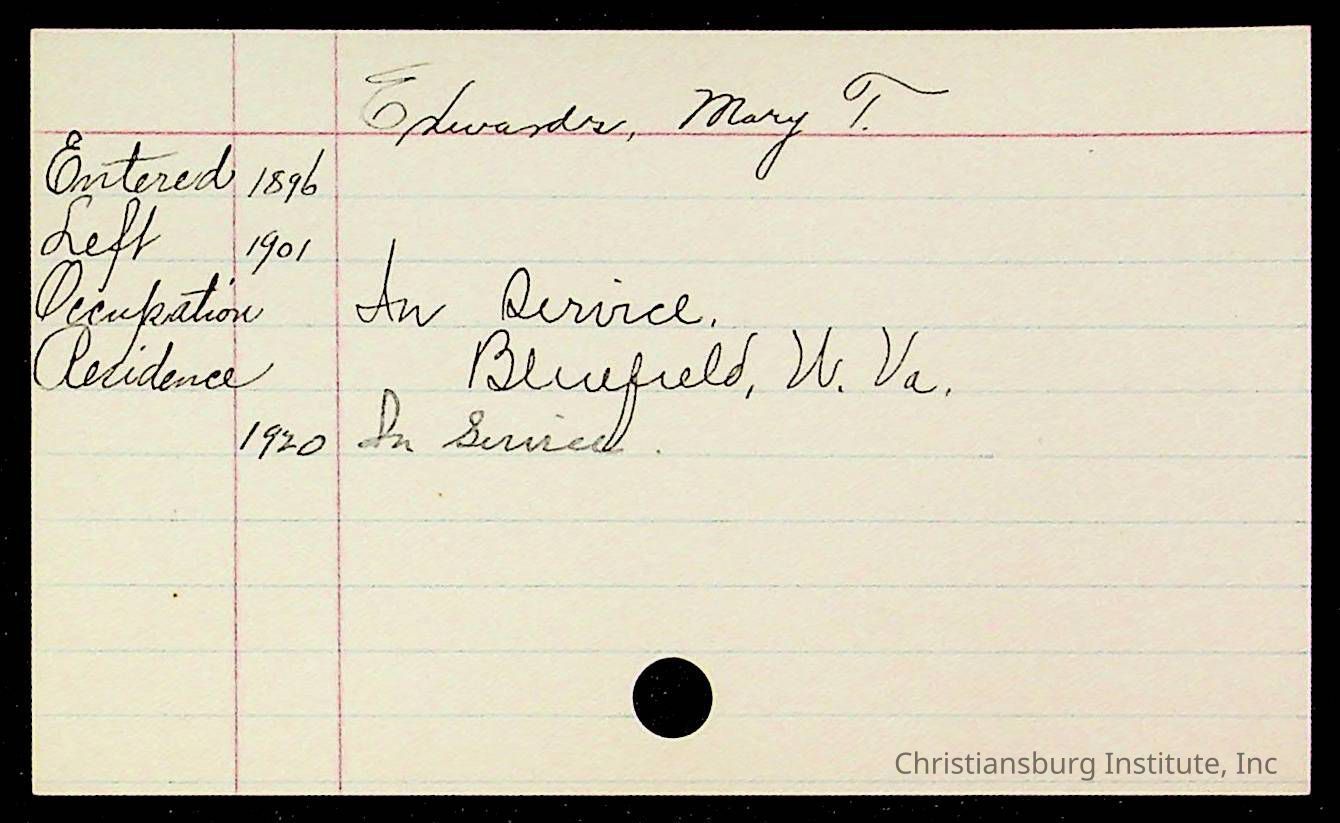 Edwards, Mary T.
Entered 1896
Left 1901
Occupation In Service.
Residence Bluefield, W. Va.
1920 In Service.
Christiansburg Institute, Inc